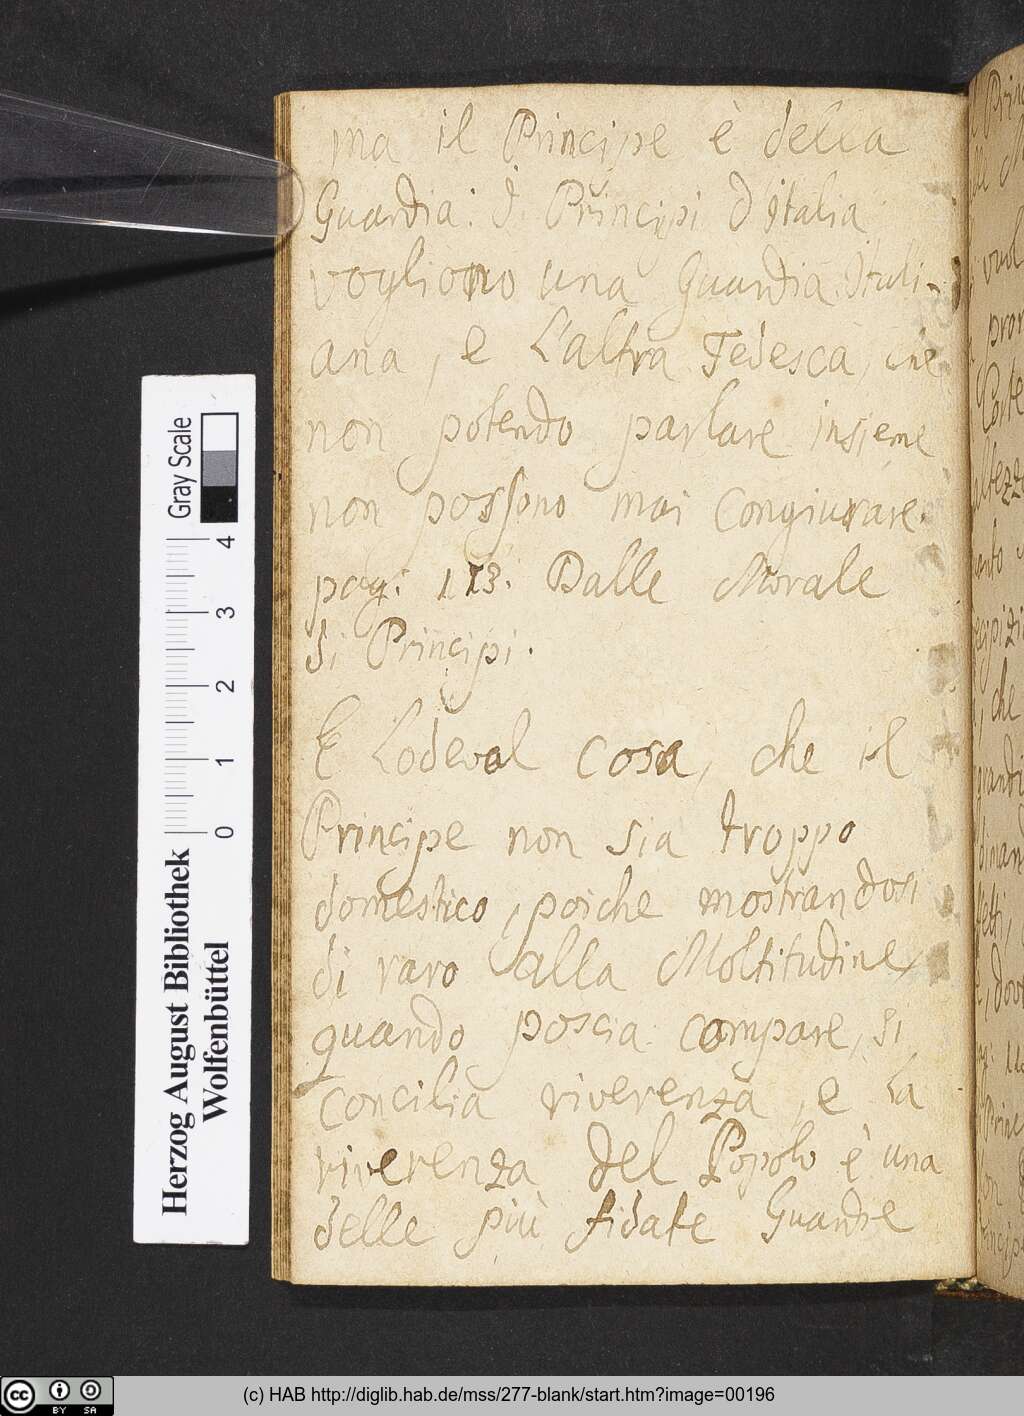 ma il Principe è della
Guardia. I Principi d'Italia
vogliono una Guardia Itali-
ana, e l'altra Tedesca, che
non potendo parlare insieme
non possono mai congiurare.
pag: 113. Dalle Morale
di Principi.
E Lodeval cosa, che il
Principe non sia troppo
domestico, poiche mostrandosi
di raro alla Moltitudine,
quando poscia compare, si
concilia riverenza, e la
riverenza del Popolo è una
delle più fidate Guardie
Gray Scale
4
3
2
1
0
Herzog August Bibliothek
Wolfenbüttel
cc BY SA
(c) HAB http://diglib.hab.de/mss/277-blank/start.htm?image=00196